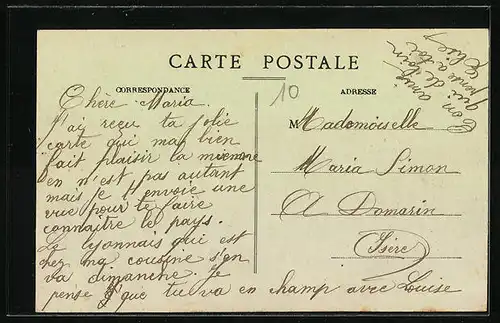 CARTE POSTALE
CORRESPONDANCE
ADRESSE
10
Ton amie
qui de loin
pense a toi
Chère Maria
J'ai reçu ta jolie
carte qui ma bien
fait plaisir la mienne
en n'est pas autant
mais je t'envoie une
vue pour te faire
connaître le pays.
Le lyonnais qui est
chez ma cousine s'en
va dimanche. Je
pense que tu va en champ avec Louise
M Mademoiselle
Maria Simon
A Domarin
Isère